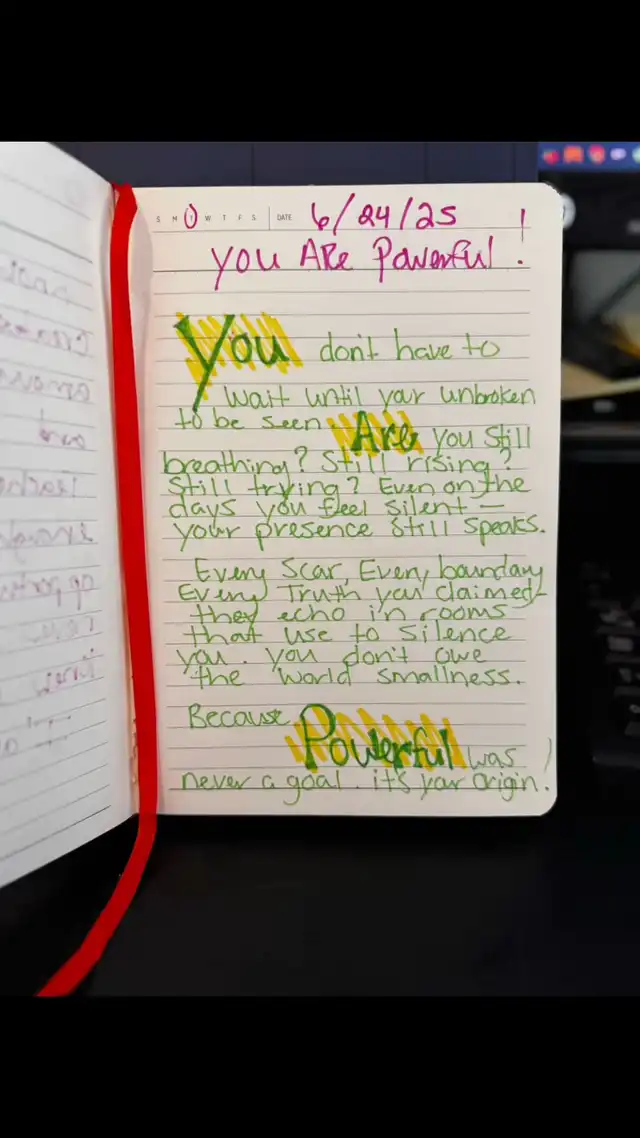 S M T W T F S DATE 6/24/25
You Are Powerful!
You don't have to
Wait until your unbroken
to be seen Are you still
breathing? Still rising?
Still trying? Even on the
days you feel silent —
your presence still speaks.
Every Scar, Every boundary
Every Truth you claimed-
they echo in rooms
that use to silence
you. you don't owe
the world smallness.
Because Powerful was
never a goal. it's your origin!